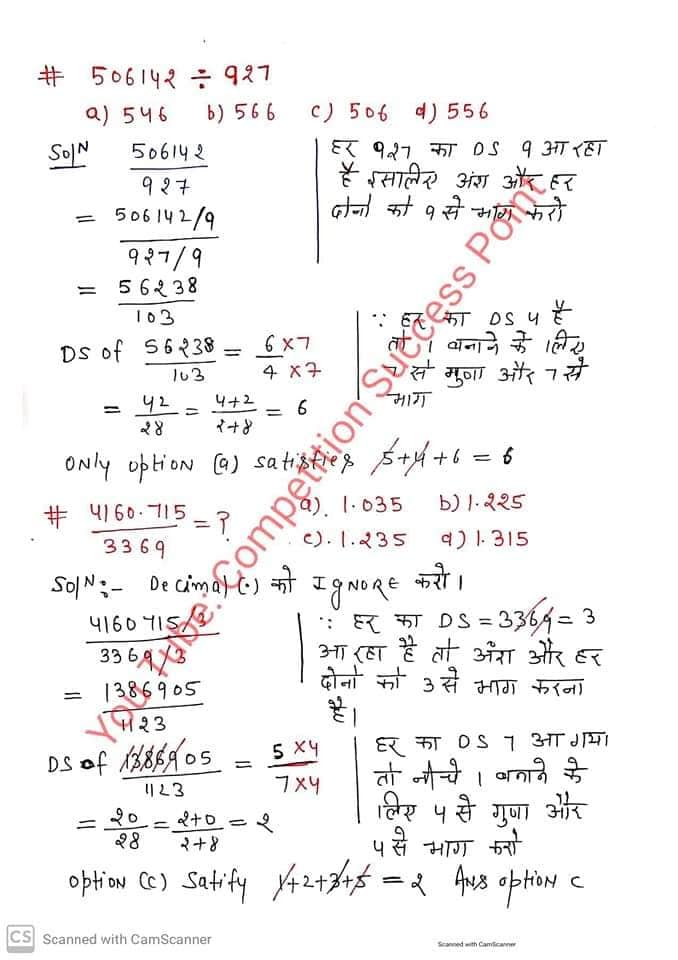 # 506142 ÷ 927
a) 546 b) 566 c) 506 d) 556
Sol^N 506142
927
= 506142/9
927/9
= 56238
103
हर 927 का DS 9 आ रहा
है इसलिए अंश और हर
दोनो को 9 से भाग करो
DS of 56238/103 = 6 x7 / 4 x7
= 42/28 = 4+2/2+8 = 6
∵ हर का DS 4 है
तो 1 बनाने के लिए
7 से गुणा और 7 से
भाग
ONLY option (a) satisfies 5+4+6 = 6
# 4160.715/3369 = ?
a). 1.035 b) 1.225
c). 1.235 d) 1.315
Sol^N:- Decimal (.) को IGNORE करो।
4160715/3
3369/3
= 1386905
1123
∵ हर का DS = 3369 = 3
आ रहा है तो अंश और हर
दोनो को 3 से भाग करना
है।
DS of 1386905/1123 = 5 x4 / 7 x4
= 20/28 = 2+0/2+8 = 2
हर का DS 7 आ गया
तो नीचे 1 बनाने के
लिए 4 से गुणा और
4 से भाग करो
option (c) Satify 1+2+3+5 = 2 Ans option c
You Tube: Competition Success Point
CS Scanned with CamScanner
Scanned with CamScanner